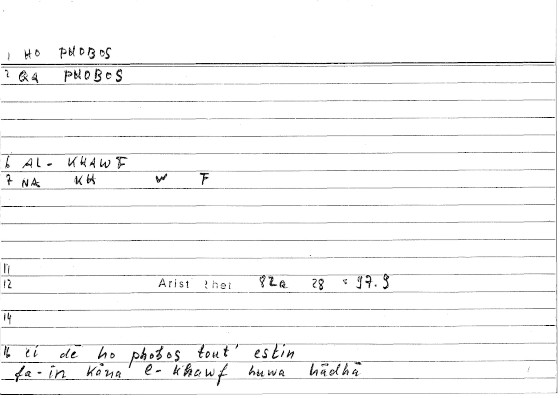 1 HO PHOBOS
2 QA PHOBOS
6 AL- KHAWF
7 NA KH W F
11
12 Arist Rhet 82a 28 = 97.9
14
16 ei dē ho phobos tout' estin
fa-in kāna l- khawf huwa hādhā